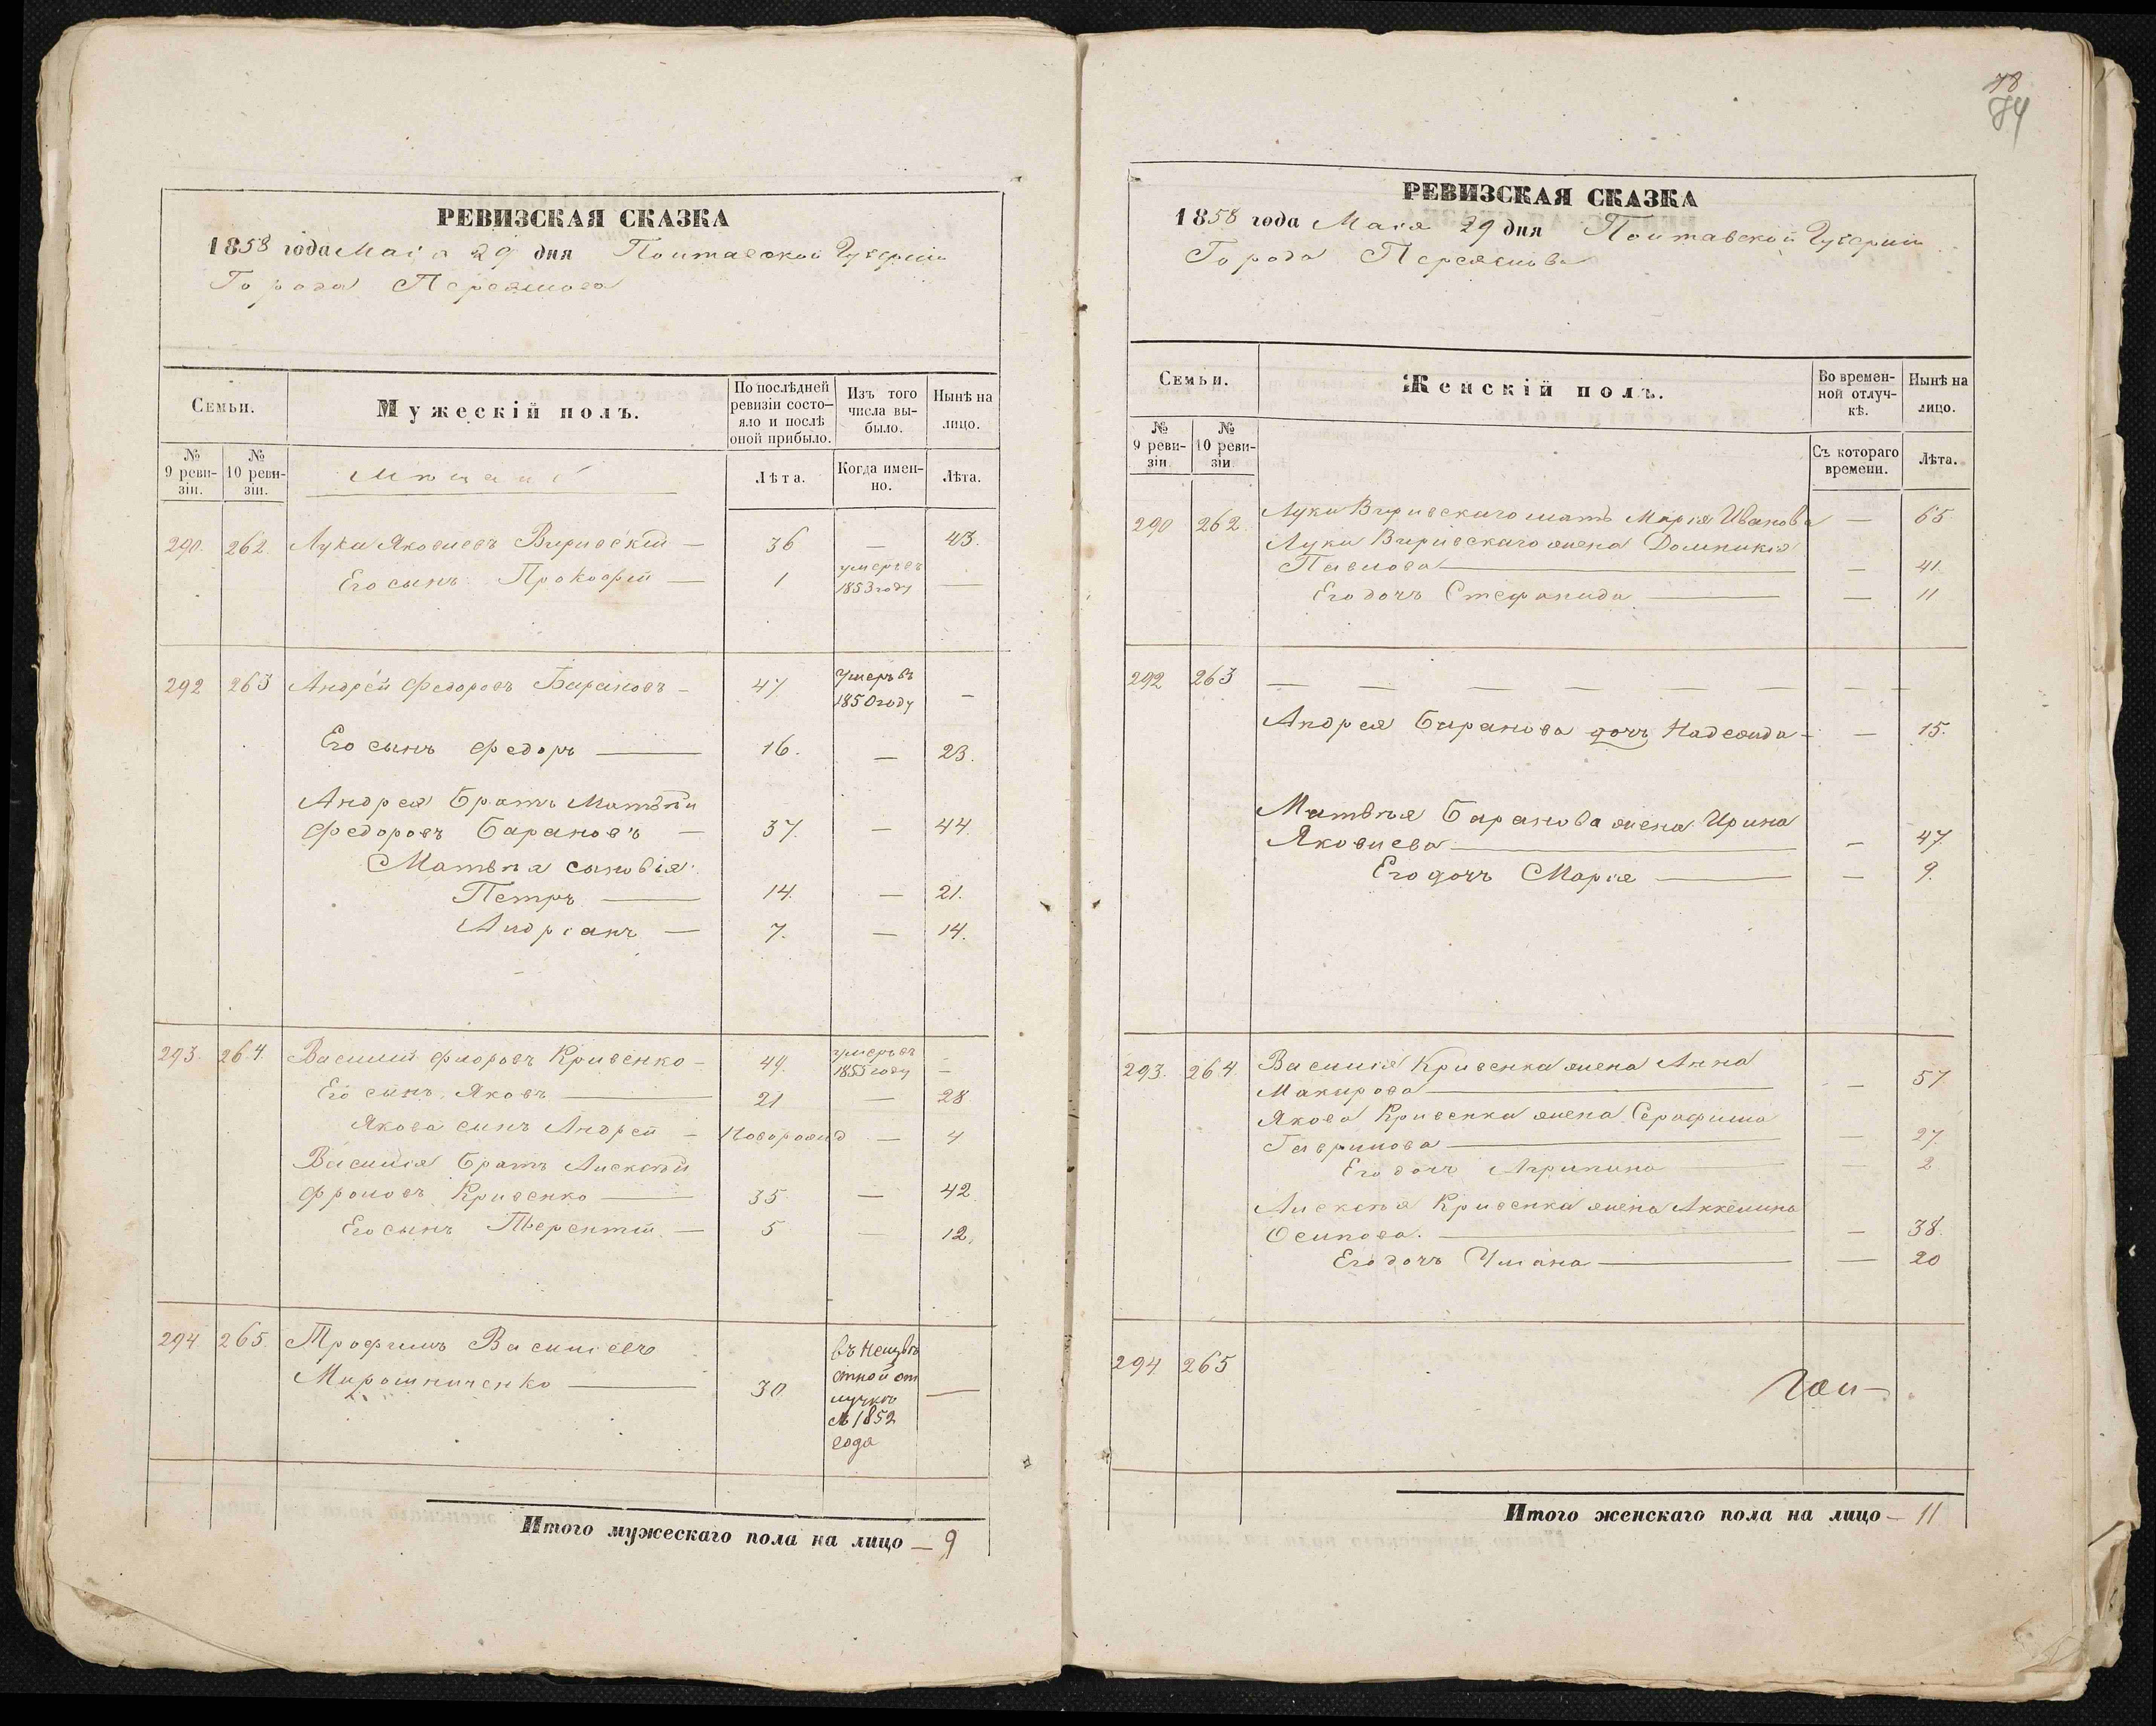 РЕВИЗСКАЯ СКАЗКА
1858 года Маія 29 дня Полтавской Губерніи
Города Переяслова
Семьи.
Мужескій полъ.
По послѣдней ревизіи состо-
яло и послѣ
оной прибыло.
Изъ того
числа вы-
было.
Нынѣ на
лицо.
№ 9 реви-
зіи.
№ 10 реви-
зіи.
Мѣщане
Лѣта.
Когда имен-
но.
Лѣта.
290. 262. Лука Яковлевъ Вириевскій — 36 — 43.
Его сынъ Прокофій — 1 умеръ въ 1853 году —
292 263 Андрей Федоровъ Барановъ — 47 Умеръ въ 1850 году —
Его сынъ Федоръ — 16. — 23.
Андрея Братъ Матвѣй
Федоровъ Барановъ — 37. — 44.
Матвѣя сыновія:
Петръ — 14. — 21.
Андріанъ — 7. — 14.
293. 264. Василий Фроловъ Кривенко — 49. умеръ въ 1855 году —
Его сынъ Яковъ — 21 — 28
Якова сынъ Андрей — Новорожд — 4
Василія Братъ Алексѣй
Фроловъ Кривенко — 35 — 42
Его сынъ Терентій — 5 — 12.
294 265. Трофимъ Васильевъ
Мирошниченко — 30 въ неизвѣ
стной от
лучкѣ
съ 1852
года —
Итого мужескаго пола на лицо — 9
78
84
РЕВИЗСКАЯ СКАЗКА
1858 года Маія 29 дня Полтавской Губерніи
Города Переяслова
Семьи.
Женскій полъ.
Во времен-
ной отлуч-
кѣ.
Нынѣ на
лицо.
№ 9 реви-
зіи.
№ 10 реви-
зіи
Съ котораго
времени.
Лѣта.
290 262. Луки Вириевскаго мать Марія Иванова — 65
Луки Вириевскаго жена Домникія
Павлова — — 41.
Его дочь Стефанида — — 11
292 263 — — — — — — — — —
Андрея Баранова дочь Надежда — — 15.
Матвѣя Баранова жена Ирина
Яковлева — — 47
Его дочь Марія — — 9.
293. 264 Василія Кривенка жена Анна
Макарова — — 57
Якова Кривенка жена Серафима
Гаврилова — — 27.
Его дочь Агрипина — — 2
Алексѣя Кривенка жена Аккелина
Осипова. — — 38.
Его дочь Уліана — — 20
294 265
Итого женскаго пола на лицо — 11